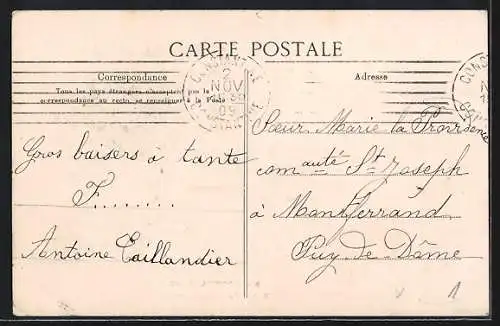 CARTE POSTALE
Correspondance
Tous les pays étrangers n'acceptent pas la
correspondance au recto, se renseigner à la Poste
CONSTANTINE
2
NOV
09
CONSTANTINE
Gros baisers à tante
F........
Antoine Taillandier
Adresse
Sœur Marie la Providence
comauté St Joseph
à Montferrand
Puy-de-Dôme
CONS
N